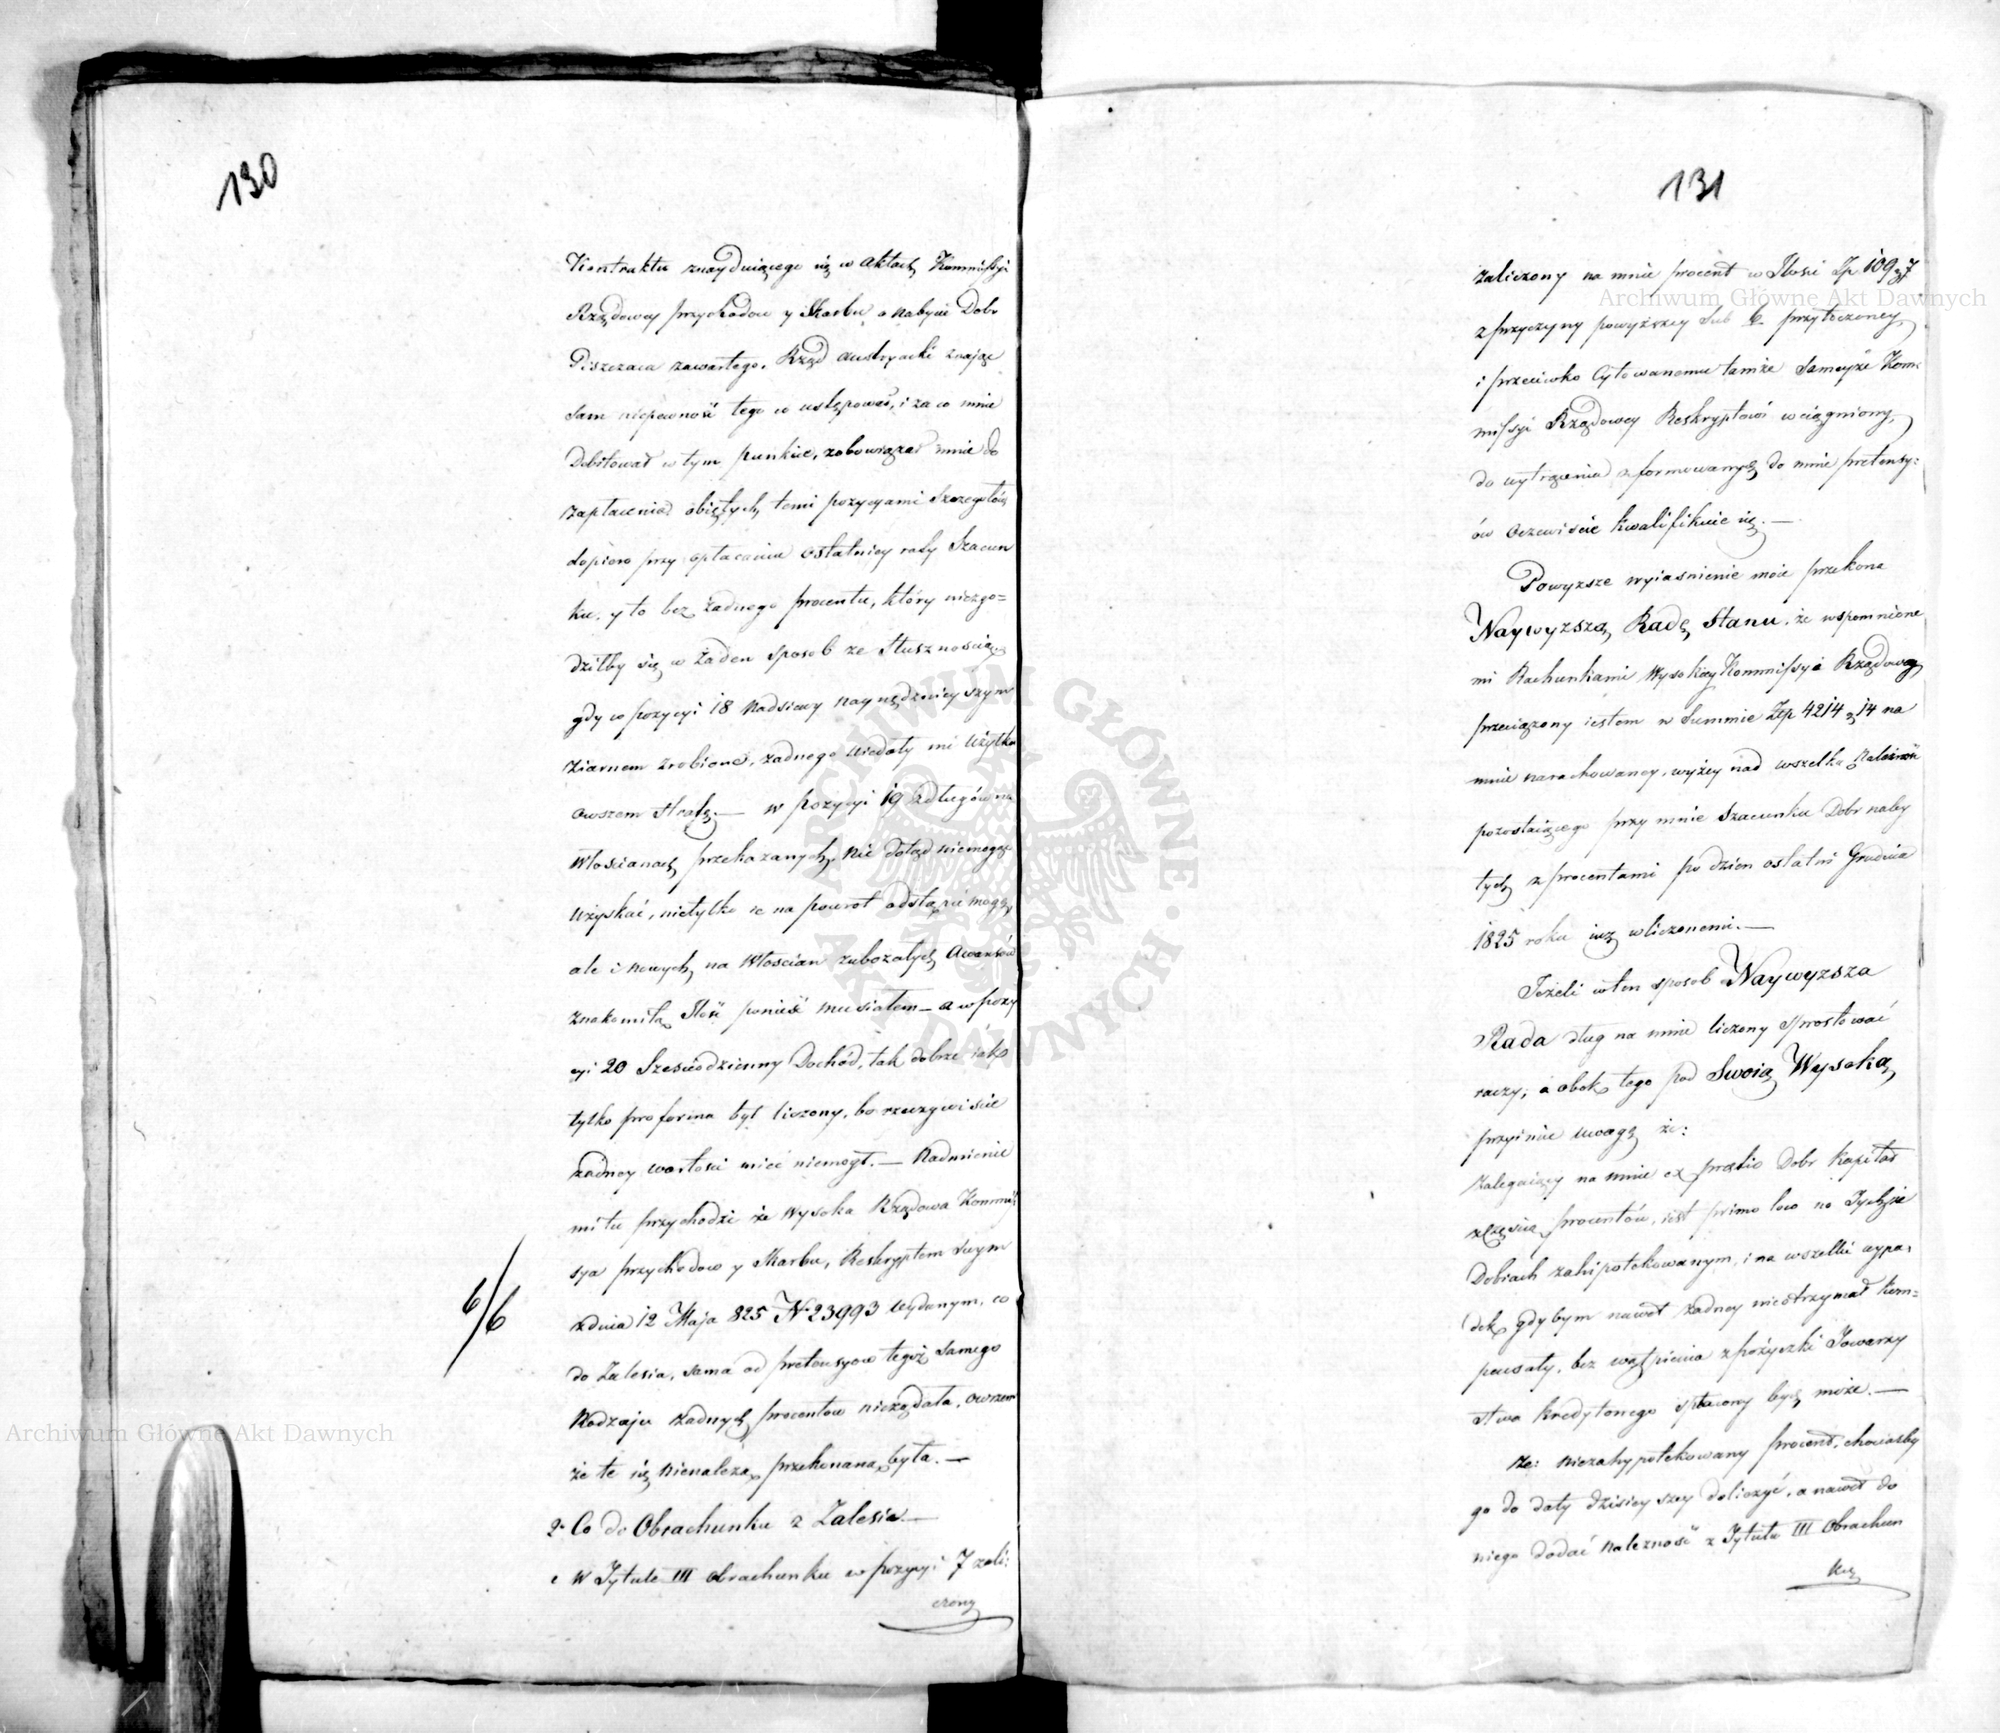 130
Kontraktu znayduiącego się w Aktach Kommissyi
Rządowey przychodow y Skarbu o nabycie Dobr
Piszczaca zawartego. Rząd Austryacki znaiąc
sam niepewność tego co ustępował, i za co mnie
Debitował w tym punkcie, zobowiązał mnie do
zapłacenia obiętych temi pozycyami Szczegołów
dopiero przy opłaceniu ostatniey raty Szacun
ku, y to bez żadnego procentu, który niezgo=
dziłby się w żaden sposob ze Słusznością
gdy w pozycyi 18 nadsiewy naynędznieyszym
ziarnem zrobione, żadnego niedały mi użytku
owszem stratę. — w pozycyi 19 Zdługów na
Włościanach przekazanych, nic dotąd niemogąc
uzyskać, nietylko je na powrot odstąpić mogę,
ale i nowych na Włościan zubożałych Awansów
znakomitą Ilość ponieść musiałem — a w pozy
cyi 20 Sześciodzienny Dochód, tak dobrze jak
tylko pro forma był liczony, bo rzeczywiście
żadney wartości mieć niemogł. — Nadmienić
mi tu przychodzi że Wysoka Rządowa Kommis
sya przychodow y Skarbu, Reskryptem swym
z dnia 12 Maja 825 N 23993 wydanym, co
do Zalesia, sama od pretensyow tegoż samego
Rodzaju żadnych procentow nieżądała, owszem
że te się nienależą, przekonaną była. —
2° Co do Obrachunku z Zalesia. —
c W Tytule III Obrachunku w pozycyi 7 zali:
czony
6/6
131
zaliczony na mnie procent w Ilości Zp 109 g 7
z przyczyny powyższey Sub b. przytoczoney,
i przeciwko Cytowanemu tamże Samejże Kom:
missyi Rządowey Reskryptowi wciągniony,
do wytrącenia z formowanych do mnie pretensy:
ów oczewiście kwalifikuie się. —
Powyższe wyiaśnienie moie przekona
Naywyższą Radę Stanu, że wspomnione
mi Rachunkami Wysokiey Kommissyi Rządowey
przeciążony iestem w Summie Złp 4214 g 14 na
mnie narachowaney, wyżey nad wszelką należność
pozostaiącego przy mnie Szacunku Dobr naby
tych z procentami po dzien ostatni Grudnia
1825 roku iuż wliczonemi. —
Jeżeli w ten sposob Naywyższa
Rada dług na mnie liczony sprostować
raczy; a obok tego pod Swoią Wysoką
przyimie uwagę że:
zalegaiący na mnie ex pretio Dobr kapitał
z Częścią procentów, iest primo loco na Tychże
Dobrach zahipotekowanym, i na wszelki wypa:
dek, gdybym nawet żadney nieotrzymał kom=
pensaty, bez wątpienia z pożyczki Towarzy
stwa kredytowego spłacony bydź może. —
Że: niezahypotekowany procent, chociażby
go do daty dzisieyszey doliczyć, a nawet do
niego dodać należność z Tytułu III Obrachun
ku
Archiwum Główne Akt Dawnych
Archiwum Główne Akt Dawnych
ARCHIWUM GŁÓWNE AKT DAWNYCH